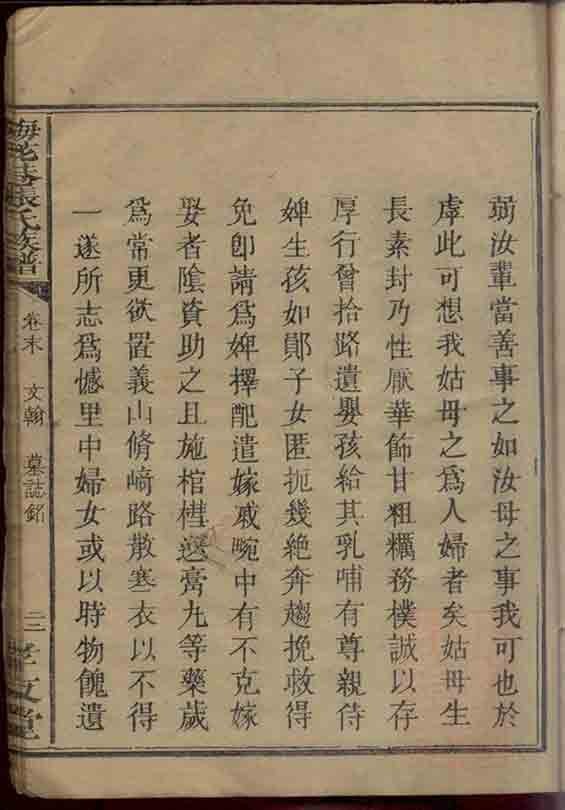 弱汝輩當善事之如汝母之事我可也於
虖此可想我姑母之爲人婦者矣姑母生
長素封乃性厭華飾甘粗糲務樸誠以存
厚行曾拾路遺嬰孩給其乳哺有尊親侍
婢生孩如鄭子女匿扼幾絶奔趨挽救得
免卽請爲婢擇配遣嫁戚畹中有不克嫁
娶者隂資助之且施棺槥送膏九等藥歲
爲常更欲置義山脩崎路散寒衣以不得
一遂所志爲憾里中婦女或以時物餽遺
梅花巷張氏族譜
卷末
文翰
墓誌銘
三
孝友堂